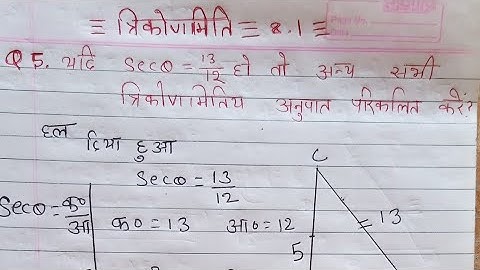 ≡ त्रिकोणमिति ≡ 8.1 ≡
Q 5. यदि secθ = 13/12 हो तो अन्य सभी
त्रिकोणमितिय अनुपात परिकलित करें?
हल दिया हुआ
secθ = 13/12
C
secθ = क०/आ
क० = 13 आ० = 12
13
5